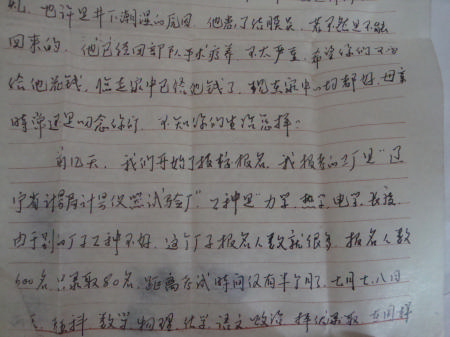 也许是井下潮湿的原因,他患了结膜炎,若不然是不能
回来的,他已经回部队手术疗养,不太严重,希望你们不必
给他寄钱,临走家中已给他钱了,现在家中一切都好,母亲
时常还是叨念你们,不知你的生活怎样?
前几天,我们开始了技校报名,我报考的工厂是“辽
宁省计量局计量仪器试验厂”工种是“力学、热学、电学、长度,
由于别的厂子工种不好,这个厂子报名人数就很多,报名人数
600名,只录取80名,距离考试时间仅有半个月了,七月七、八日
考 数学 物理 化学 语文 政治 择优录取